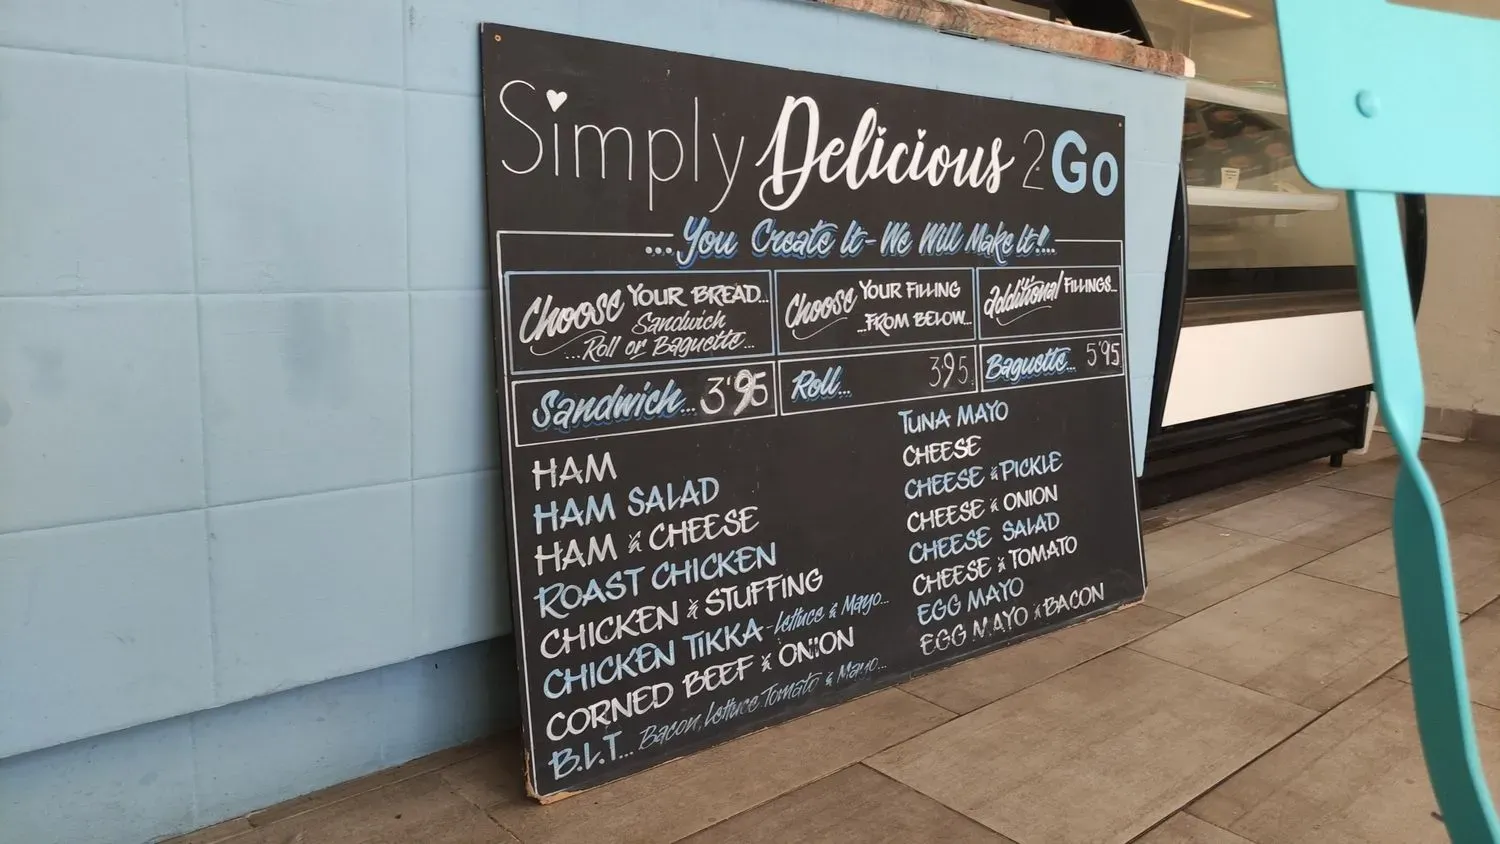 Simply Delicious 2 Go
...You Create It - We Will Make It!...
Choose YOUR BREAD...
Sandwich
...Roll or Baguette...
Choose YOUR FILLING
...FROM BELOW...
additional FILLINGS...
Sandwich... 3'95
Roll... 395
Baguette... 5'95
HAM
HAM SALAD
HAM & CHEESE
ROAST CHICKEN
CHICKEN & STUFFING
CHICKEN TIKKA - Lettuce & Mayo...
CORNED BEEF & ONION
B.L.T... Bacon, Lettuce Tomato & Mayo...
TUNA MAYO
CHEESE
CHEESE & PICKLE
CHEESE & ONION
CHEESE SALAD
CHEESE & TOMATO
EGG MAYO
EGG MAYO & BACON